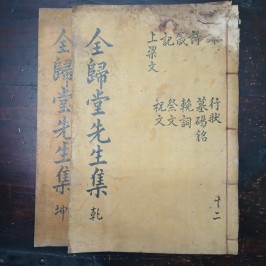 全歸堂先生集 乾
詩
啟
記
上梁文
行狀
墓碣銘
輓詞
祭文
祝文
十二
全歸堂先生集 坤